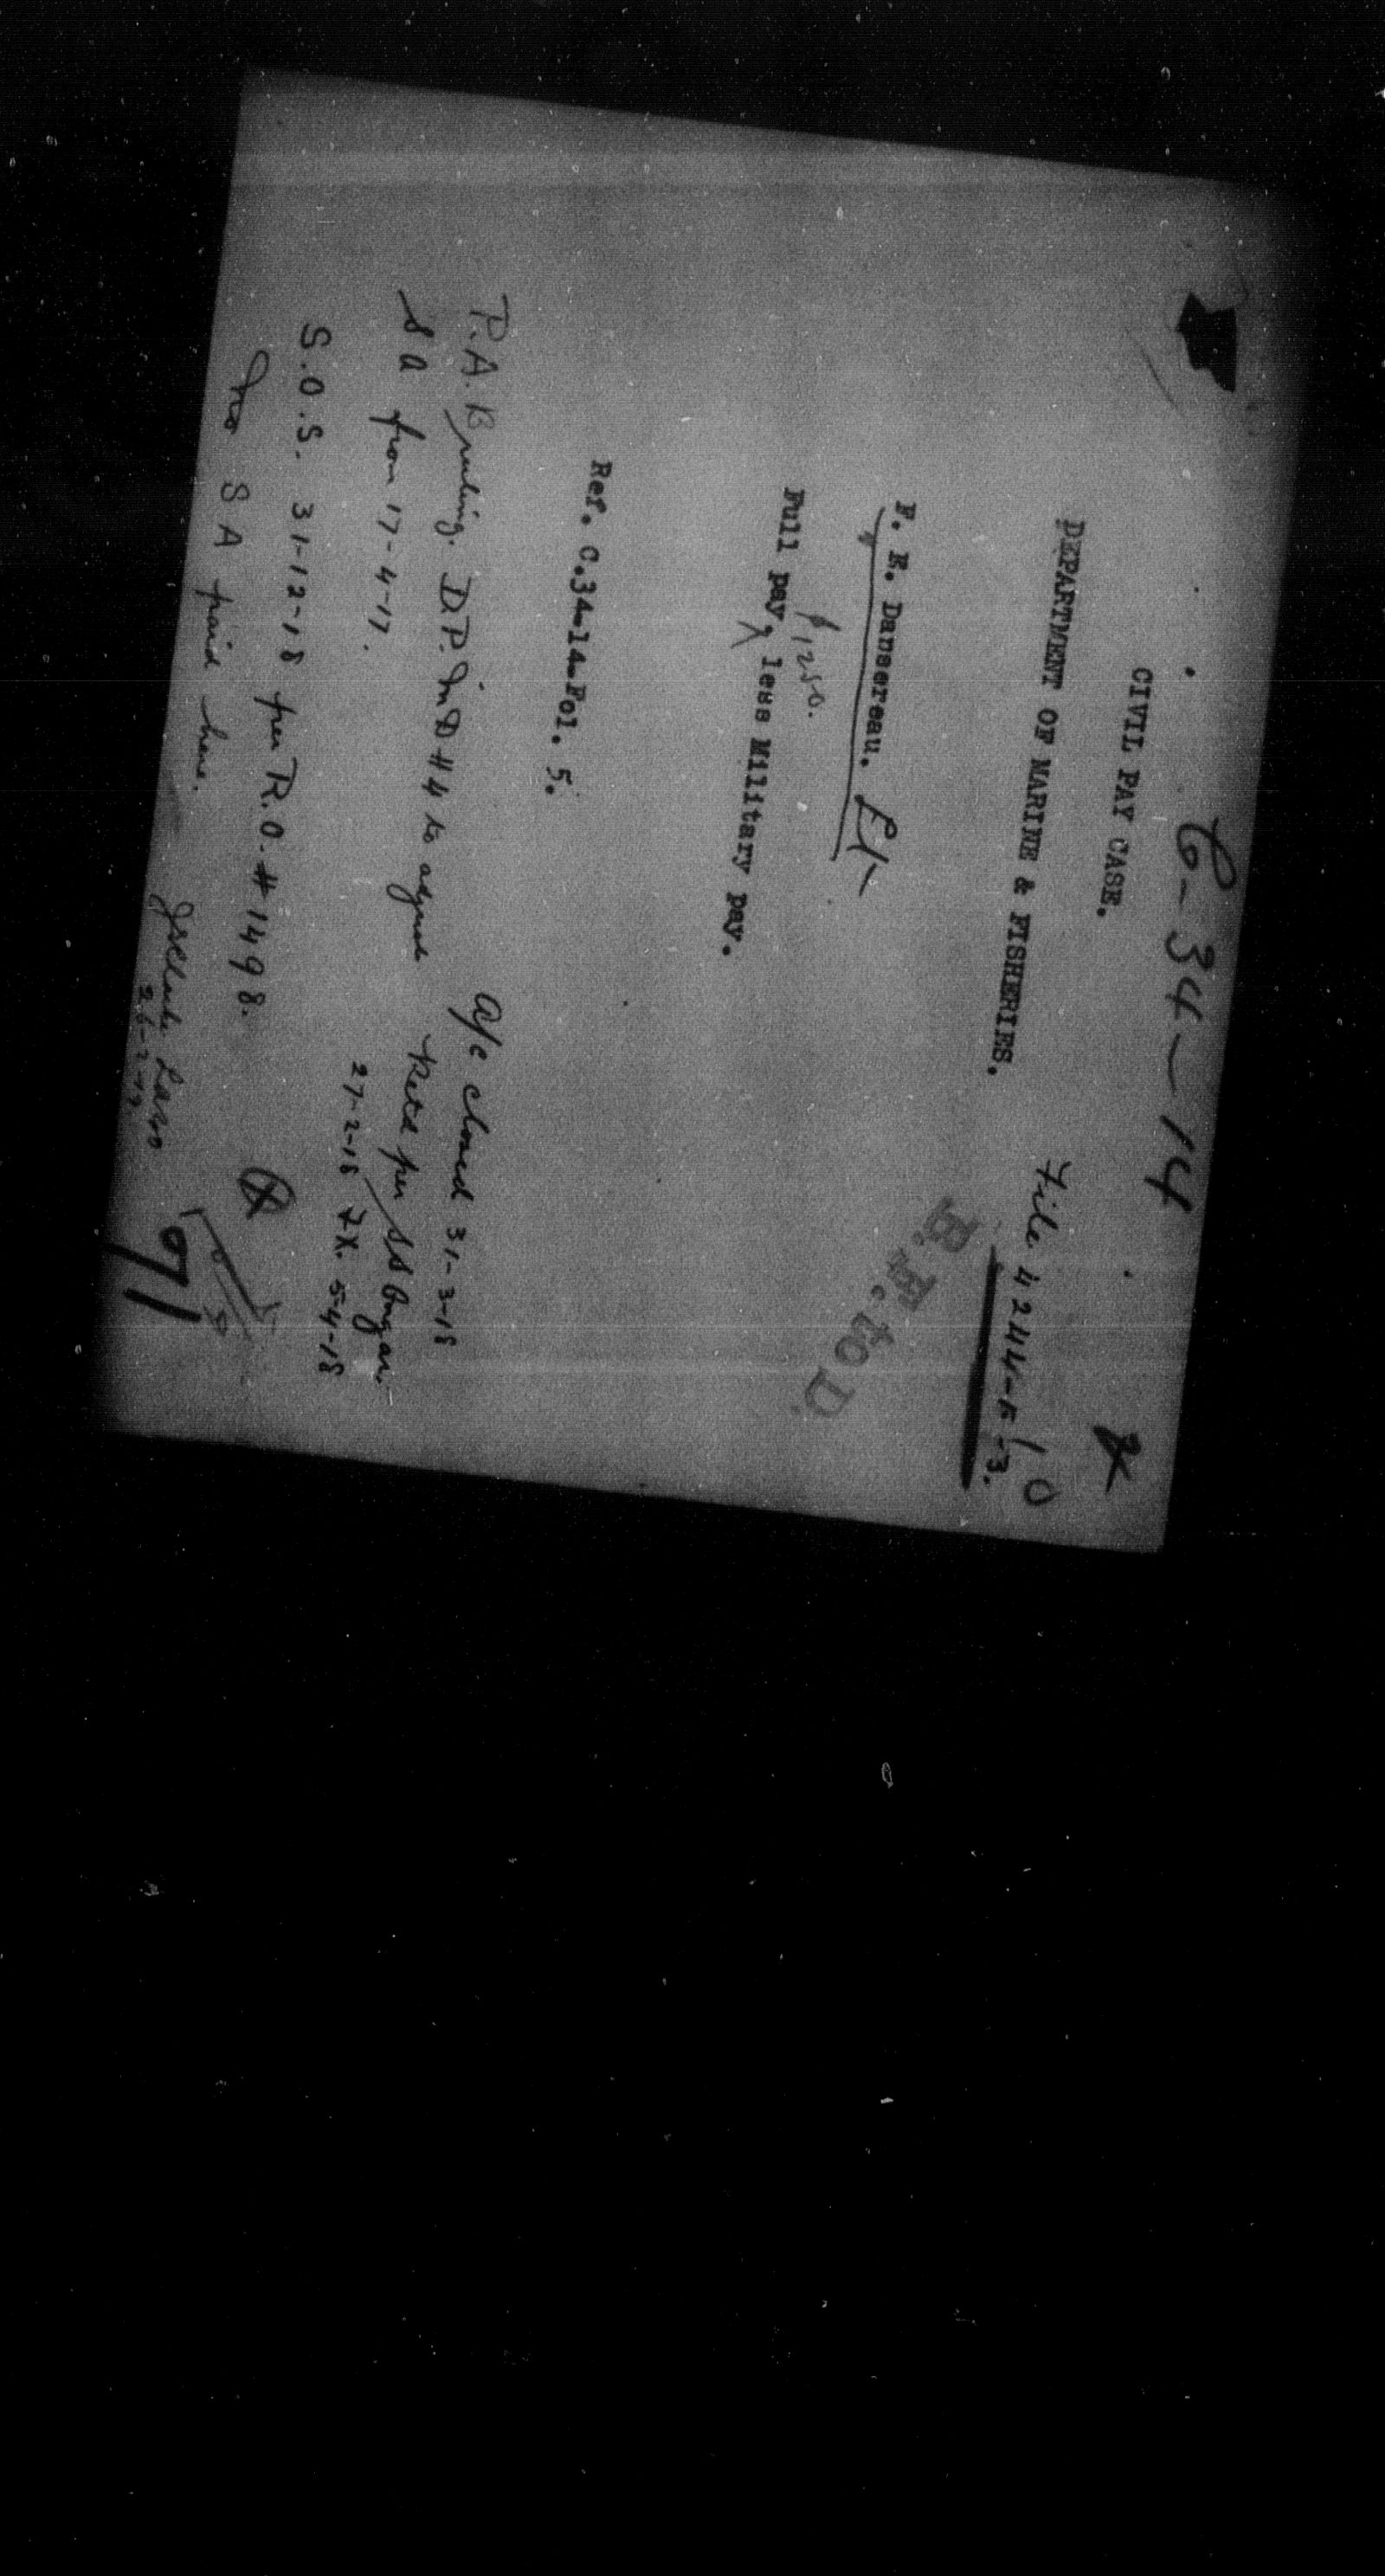 C-34-14
CIVIL PAY CASE.
File 4244-5-3.
DEPARTMENT OF MARINE & FISHERIES.
B.F. to D.
F. E. Dansereau. Lt
$1250.
Full pay, less Military pay.
Ref. C.34-14-Fol. 5.
a/c closed 31-3-18
P.A.B ruling. D.P. M D #4 to adjust
Retd per SS
S A from 17-4-17.
27-2-18 5-4-18
S.O.S. 31-12-18 per R.O. #1498.
no S A paid here.
26-2-19
91